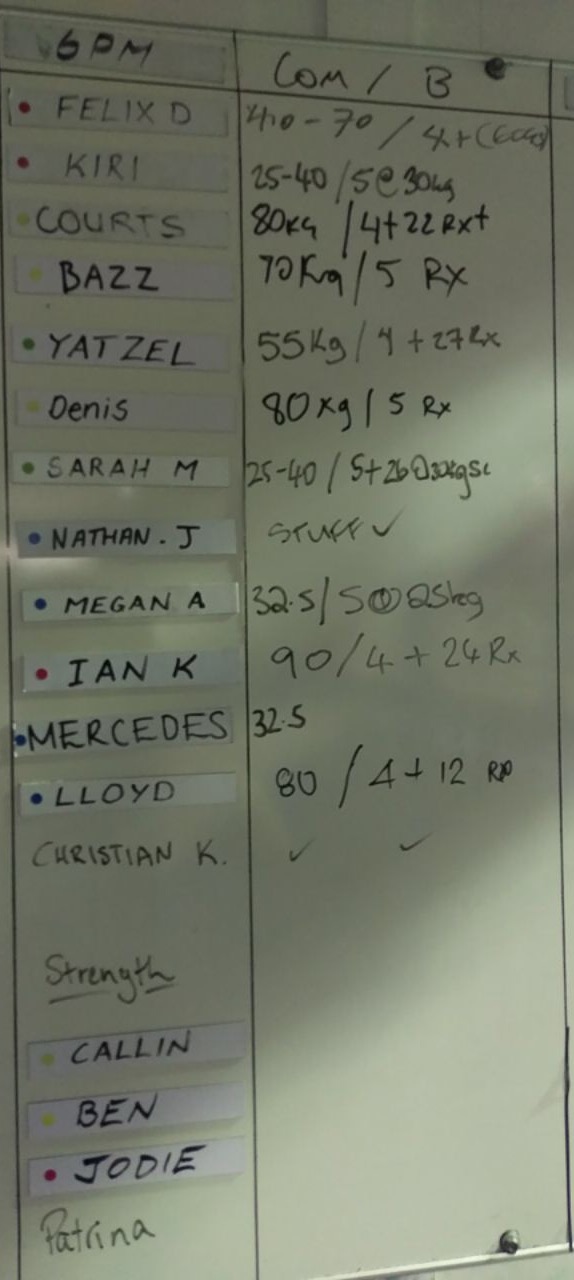 6PM COM / B
FELIX D 40-70 / 4x+
KIRI 25-40 / 5@30kg
COURTS 80KG / 4+22 Rx+
BAZZ 70Kg / 5 RX
YATZEL 55Kg / 4 + 27 Rx
Denis 80Kg / 5 Rx
SARAH M 25-40 / 5+26@30kgsc
NATHAN. J STUFF ✓
MEGAN A 32.5 / 5@25kg
IAN K 90 / 4 + 24 Rx
MERCEDES 32.5
LLOYD 80 / 4 + 12
CHRISTIAN K. ✓ ✓
Strength
CALLIN
BEN
JODIE
Patrina